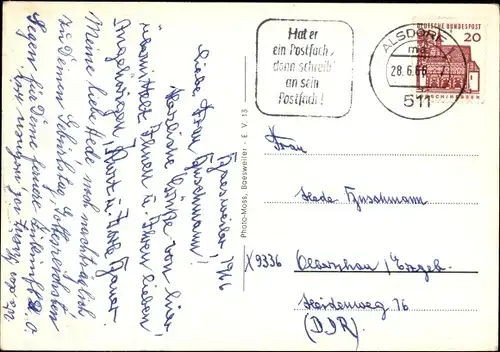 Hat er
ein Postfach,
dann schreib'
an sein
Postfach!
ALSDORF
28.6.66
511
DEUTSCHE BUNDESPOST
20
LORSCH/HESSEN
Photo-Moss, Baesweiler - E. V. 13
Baesweiler,
Liebe Frau Huschmann!
Herzliche Grüße von hier,
übermittelt Ihnen u. Ihren lieben
Angehörigen, Kurt u. Frau
Meine liebe Hede noch nachträglich
zu Deinem Geburtstag, Gottes reichsten
Segen für Deine fernere Zukunft
Frau
Hede Huschmann
X9336 Olbernhau/Erzgeb.
Heidenweg 76
(DDR)